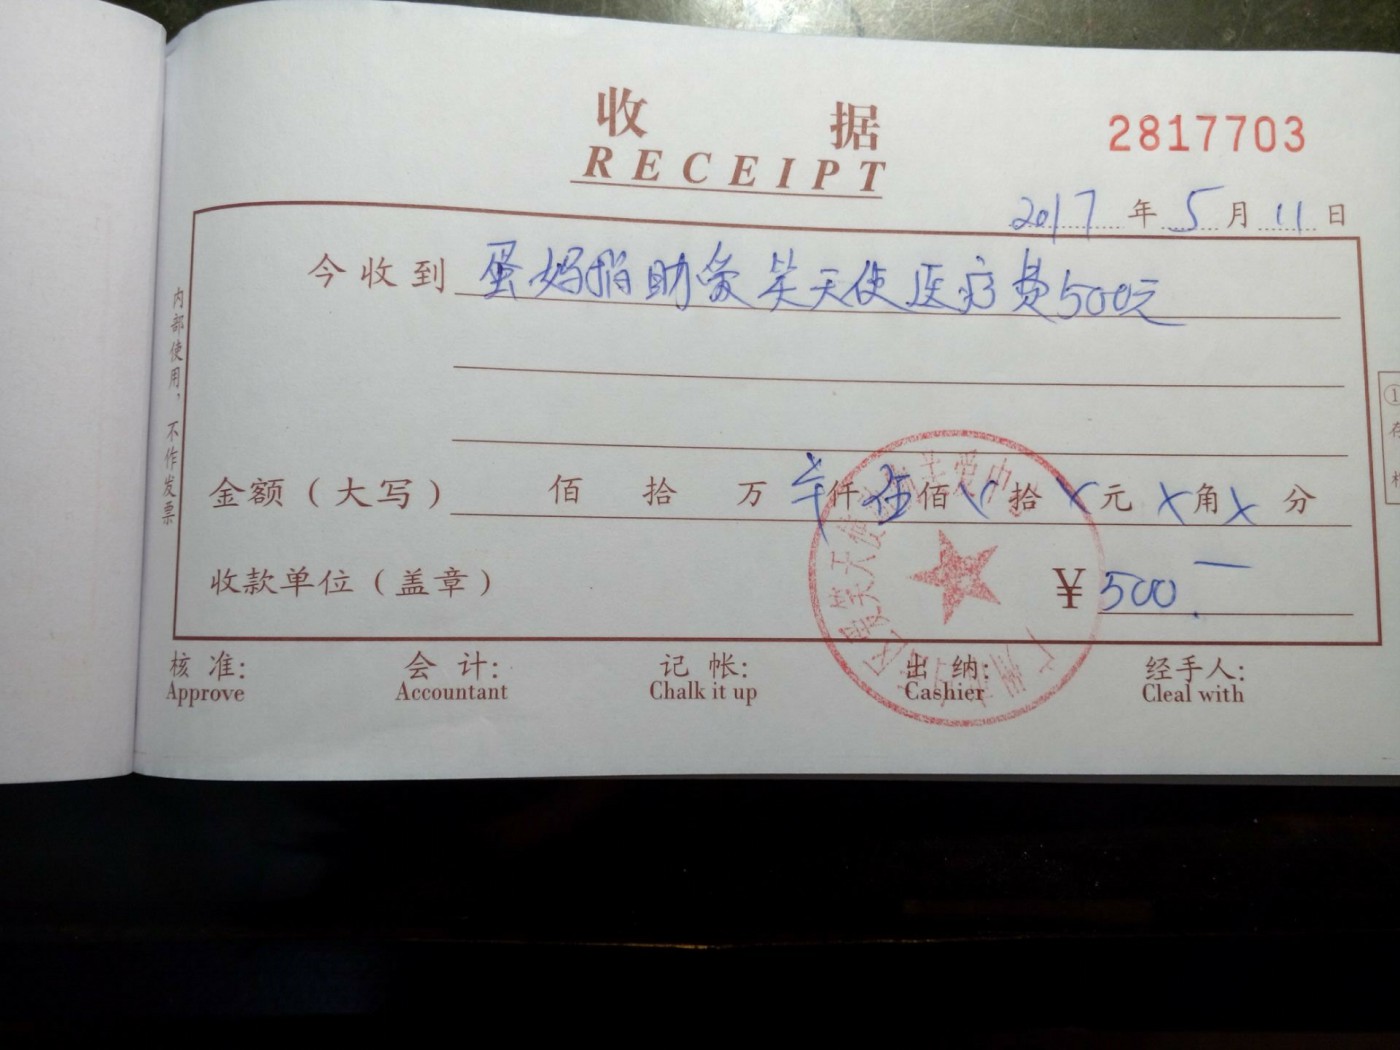 收据
RECEIPT
2817703
2017年5月11日
今收到 蛋妈捐助爱笑天使医疗费500元
金额（大写） 佰 拾 万 仟 伍佰 X拾 X元 X角 X分
收款单位（盖章） ¥500.—
核准: 会计: 记帐: 出纳: 经手人:
Approve Accountant Chalk it up Cashier Cleal with
内部使用，不作发票
①
存